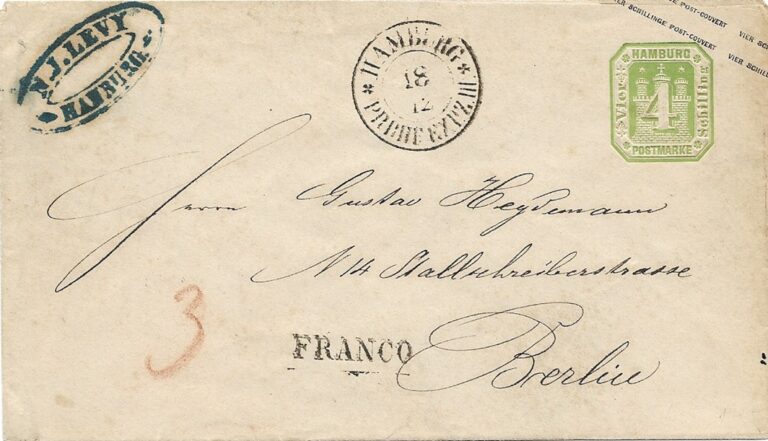 N.J. LEVY
HAMBURG.
HAMBURG
18
12
PR BHF EXP Z III
VIER SCHILLINGE POST-COUVERT
VIER SCHILLINGE POST-COUVERT
VIER SCHILL
HAMBURG
Vier
4
Schilling
POSTMARKE
Herrn Gustav Heydemann
N 14 Stallschreiberstrasse
3
FRANCO
Berlin